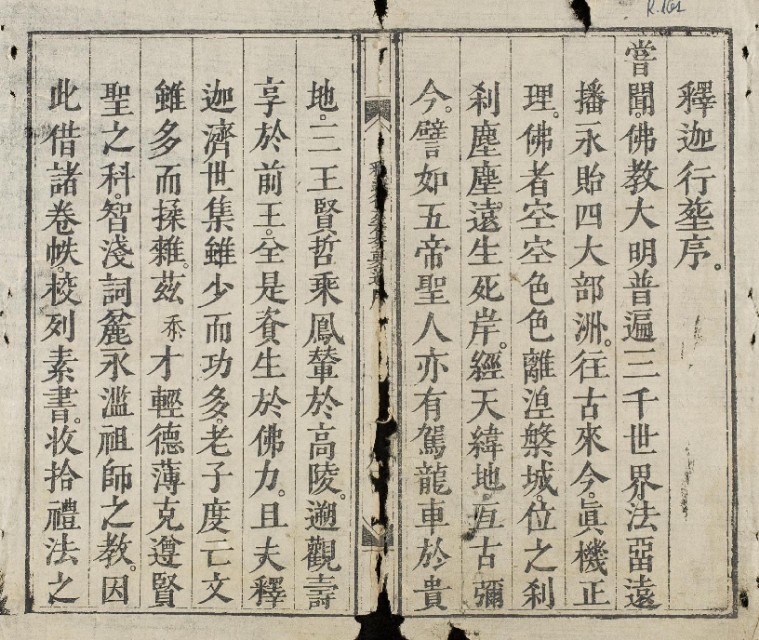 R.161
釋迦行塟序。
嘗聞。佛教大明普遍三千世界法畱遠
播永貽四大部洲。往古來今。眞機正
理。佛者空空色色離湼槃城。位之刹
刹塵塵遠生死岸。經天緯地。亙古彌
今。譬如五帝聖人亦有駕龍車於貴
地。三王賢哲乘鳳輦於高陵。遡觀壽
享於前王。全是資生於佛力。且夫釋
迦濟世集雖少而功多。老子度亡文
雖多而操雜。茲忝才輕德薄克遵賢
聖之科。智淺詞麄永濫祖師之教。因
此借諸卷帙。校列素書。收拾禮法之